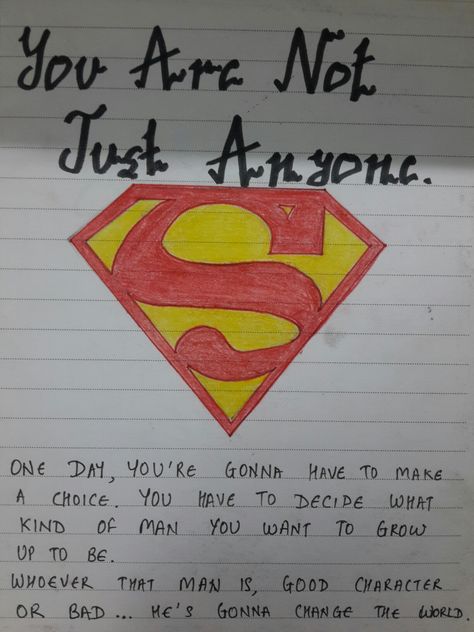 You Are Not
Just Anyone.
S
ONE DAY, YOU'RE GONNA HAVE TO MAKE
A CHOICE. YOU HAVE TO DECIDE WHAT
KIND OF MAN YOU WANT TO GROW
UP TO BE.
WHOEVER THAT MAN IS, GOOD CHARACTER
OR BAD... HE'S GONNA CHANGE THE WORLD.